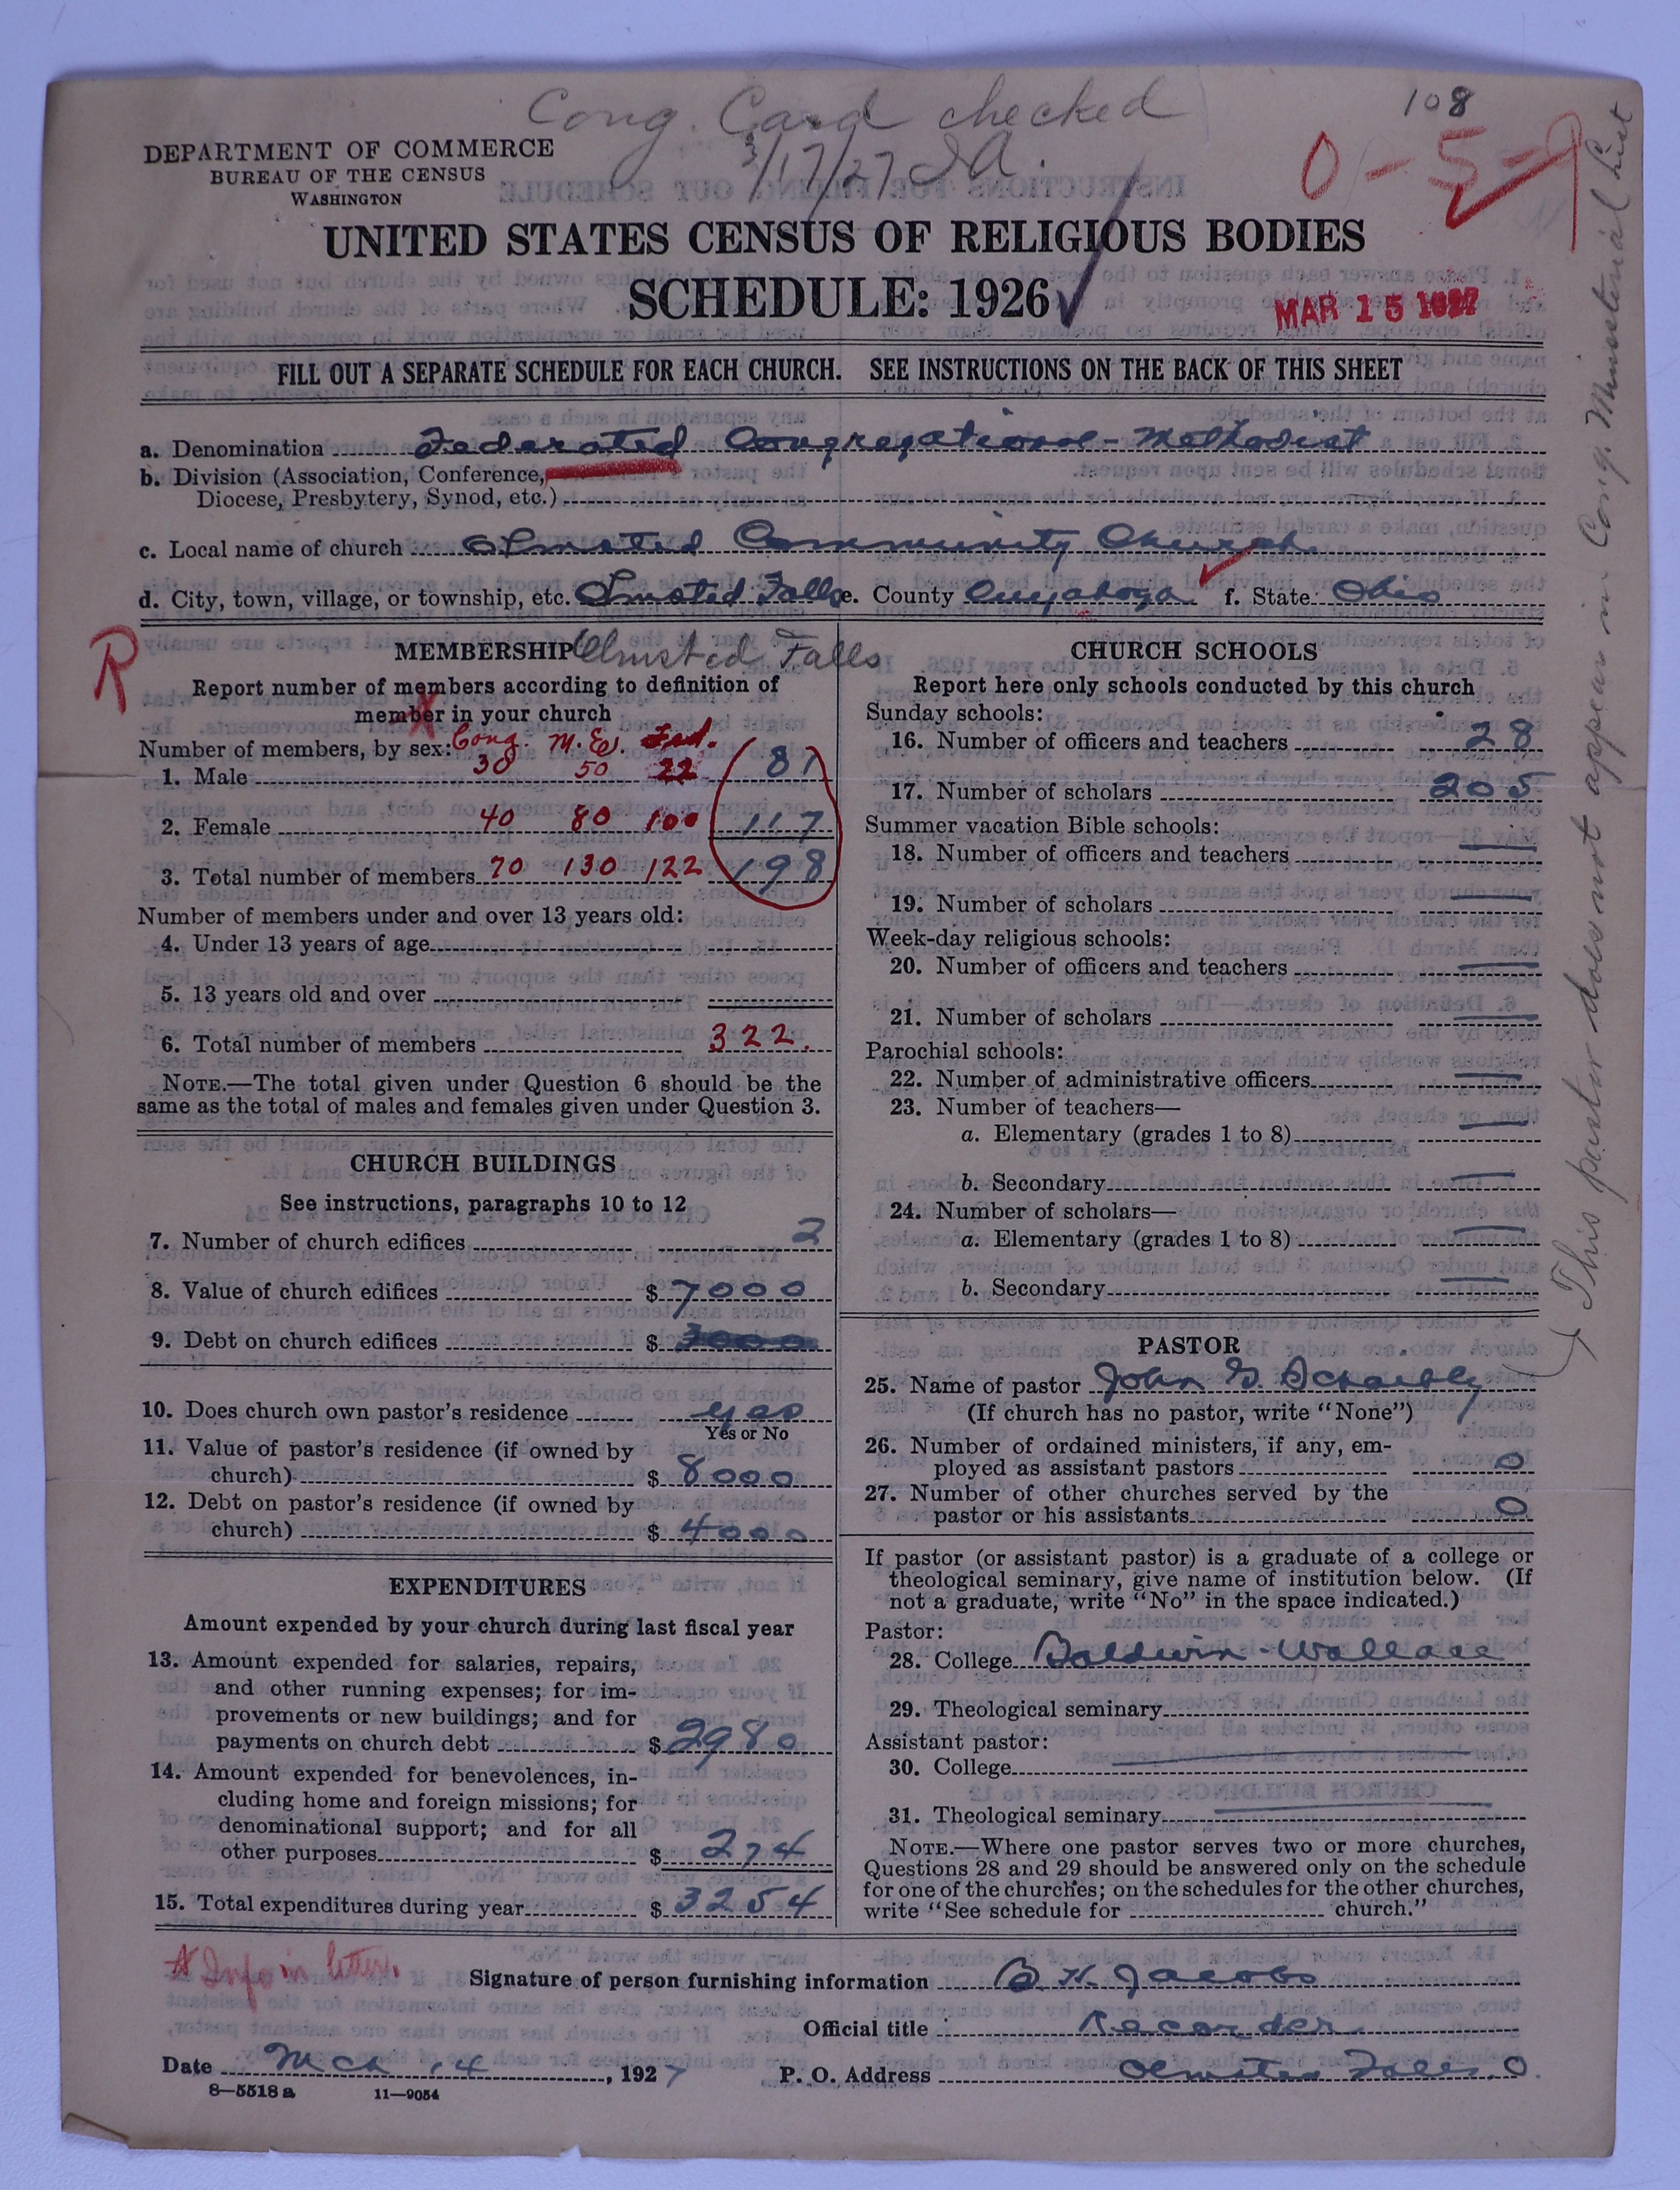 Cong. Card checked
3/17/27 J.A.
108
0-5-9
DEPARTMENT OF COMMERCE
BUREAU OF THE CENSUS
WASHINGTON
UNITED STATES CENSUS OF RELIGIOUS BODIES
SCHEDULE: 1926
MAR 15 1927
FILL OUT A SEPARATE SCHEDULE FOR EACH CHURCH. SEE INSTRUCTIONS ON THE BACK OF THIS SHEET
a. Denomination Federated Congregational-Methodist
b. Division (Association, Conference,
Diocese, Presbytery, Synod, etc.)
c. Local name of church Olmsted Community Church
d. City, town, village, or township, etc. Olmsted Falls e. County Cuyahoga f. State Ohio
R
MEMBERSHIP Olmsted Falls
Report number of members according to definition of
member in your church
Number of members, by sex: Cong. M.E. Fed.
1. Male 30 50 22 81
2. Female 40 80 100 117
3. Total number of members 70 130 122 198
Number of members under and over 13 years old:
4. Under 13 years of age
5. 13 years old and over
6. Total number of members 322.
NOTE.—The total given under Question 6 should be the
same as the total of males and females given under Question 3.
CHURCH BUILDINGS
See instructions, paragraphs 10 to 12
7. Number of church edifices 2
8. Value of church edifices $ 7000
9. Debt on church edifices $ 3000
10. Does church own pastor's residence yes
Yes or No
11. Value of pastor's residence (if owned by
church) $ 8000
12. Debt on pastor's residence (if owned by
church) $ 4000
EXPENDITURES
Amount expended by your church during last fiscal year
13. Amount expended for salaries, repairs,
and other running expenses; for im-
provements or new buildings; and for
payments on church debt $ 2980
14. Amount expended for benevolences, in-
cluding home and foreign missions; for
denominational support; and for all
other purposes $ 274
15. Total expenditures during year $ 3254
CHURCH SCHOOLS
Report here only schools conducted by this church
Sunday schools:
16. Number of officers and teachers 28
17. Number of scholars 205
Summer vacation Bible schools:
18. Number of officers and teachers
19. Number of scholars
Week-day religious schools:
20. Number of officers and teachers
21. Number of scholars
Parochial schools:
22. Number of administrative officers
23. Number of teachers—
a. Elementary (grades 1 to 8)
b. Secondary
24. Number of scholars—
a. Elementary (grades 1 to 8)
b. Secondary
PASTOR
25. Name of pastor John G. Schaibly
(If church has no pastor, write "None")
26. Number of ordained ministers, if any, em-
ployed as assistant pastors 0
27. Number of other churches served by the
pastor or his assistants 0
If pastor (or assistant pastor) is a graduate of a college or
theological seminary, give name of institution below. (If
not a graduate, write "No" in the space indicated.)
Pastor:
28. College Baldwin-Wallace
29. Theological seminary
Assistant pastor:
30. College
31. Theological seminary
NOTE.—Where one pastor serves two or more churches,
Questions 28 and 29 should be answered only on the schedule
for one of the churches; on the schedules for the other churches,
write "See schedule for church."
This pastor does not appear in Cong. Ministerial List
* Info in letter.
Signature of person furnishing information B. H. Jacobs
Official title Recorder
Date Mch 14, 1927 P. O. Address Olmsted Falls. O.
8—5518 a 11—9054